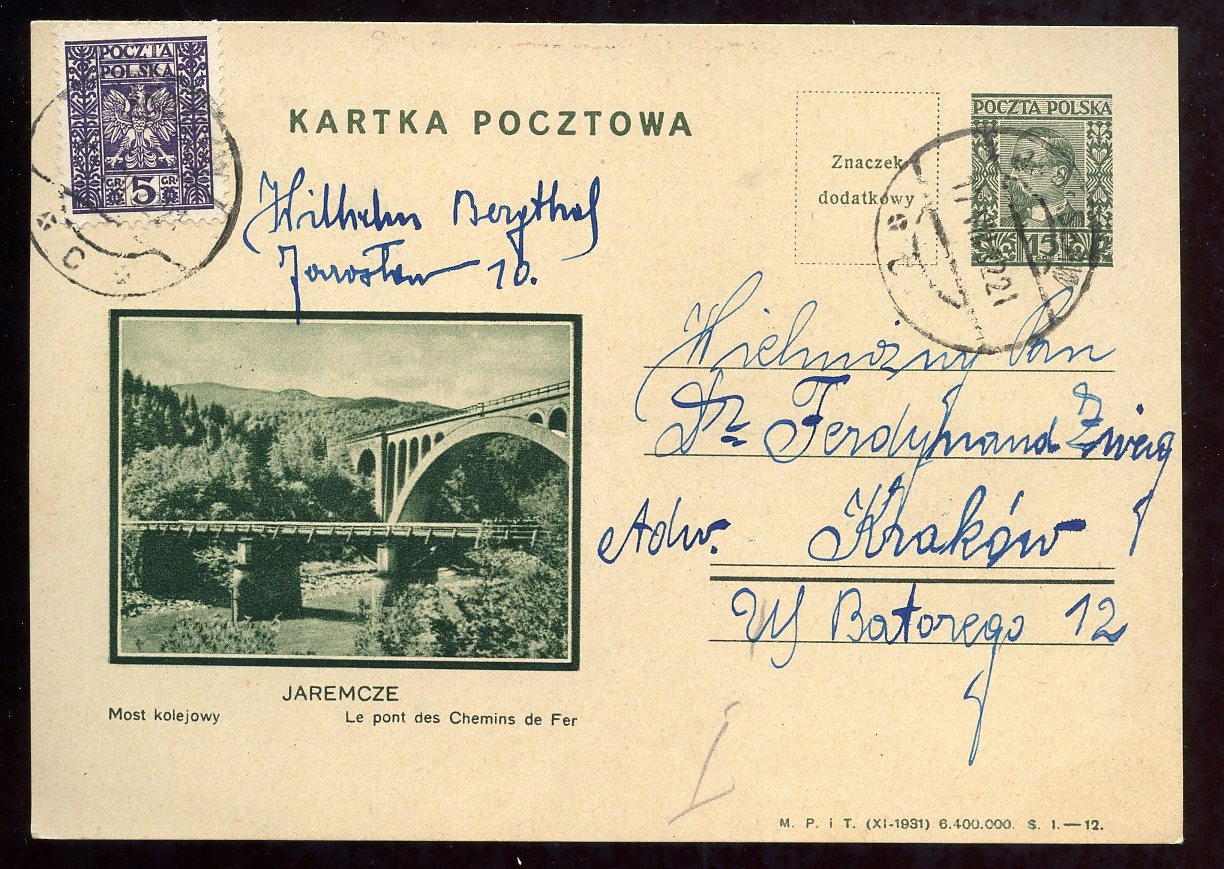 POCZTA
POLSKA
GR. 5 GR.
KARTKA POCZTOWA
Znaczek
dodatkowy
POCZTA POLSKA
15
C
2
Wilhelm
Jarosław 10.
Wielmożny Pan
Dr Ferdynand Zweig
Adw. Kraków
Ul Batorego 12
JAREMCZE
Most kolejowy Le pont des Chemins de Fer
M. P. i T. (XI-1931) 6.400.000. S. I.—12.